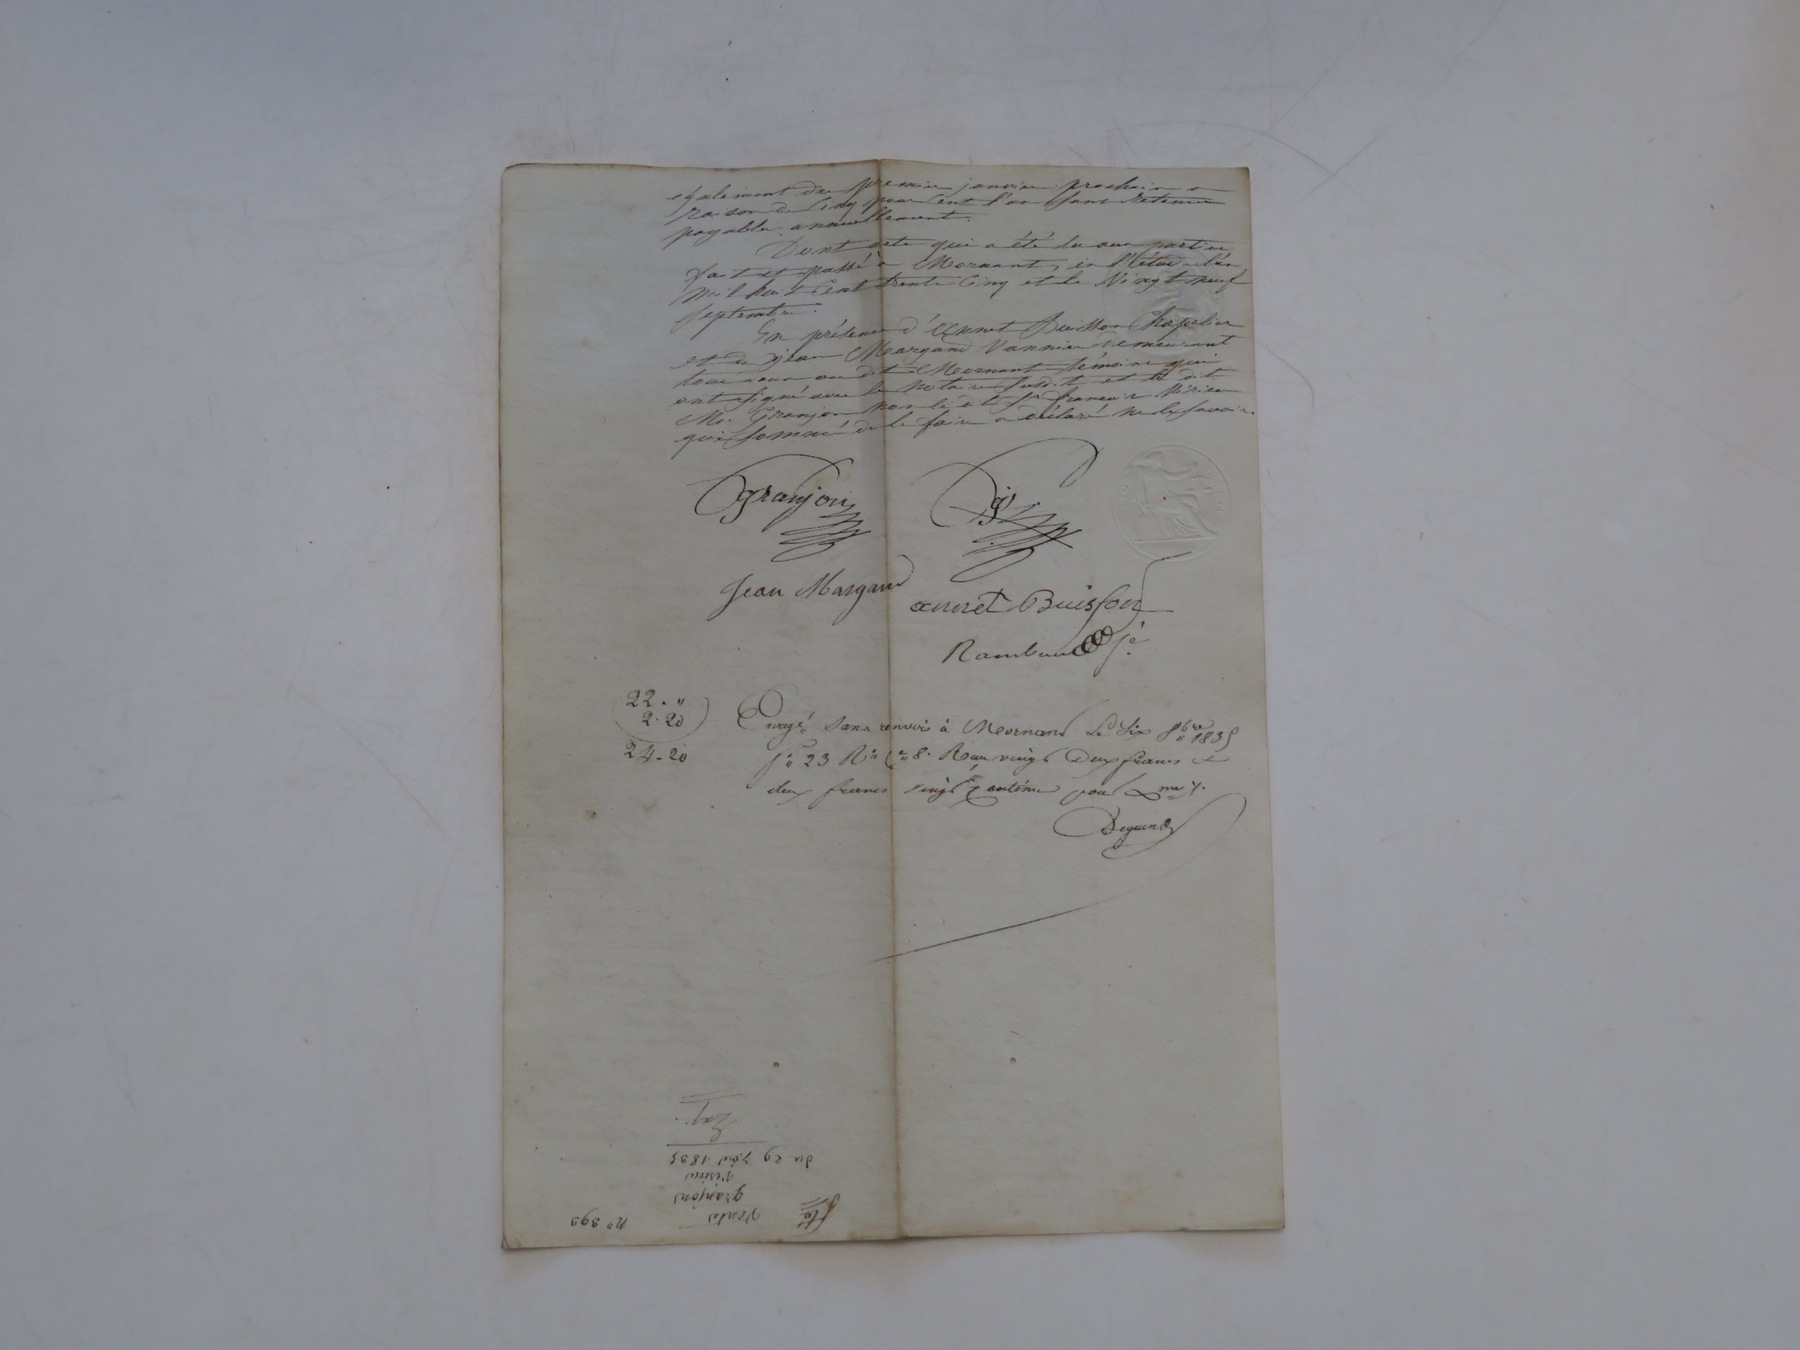 egalement du premier janvier prochain a
raison de Cinq pour Cent l'an sans retenue
payable annuellement.
Dont acte qui a été lu aux parties
fait et passé a Mornant, en l'étude l'an
mil huit Cent trente Cinq et le Vingt neuf
septembre.
En présence d'Annet Buisson Chapelier
et de Jean Margand Vannier demeurant
tous deux au dit Mornant témoins qui
ont signé avec le Notaire susdit et le dit
Mr. Granjon non le dit Sr françois
qui sommé de le faire a déclaré ne le savoir.
Granjon
Jean Margand
annet Buisson
Rambaud
22. "
2.20
24.20
Enregé sans renvois à Mornant Le Six 8bre 1835
fo 23 Ro Ce 8. Reçu vingt Deux francs et
deux francs vingt Centimes pour Dme
no 393
Vente
granjon
du 29 7bre 1835